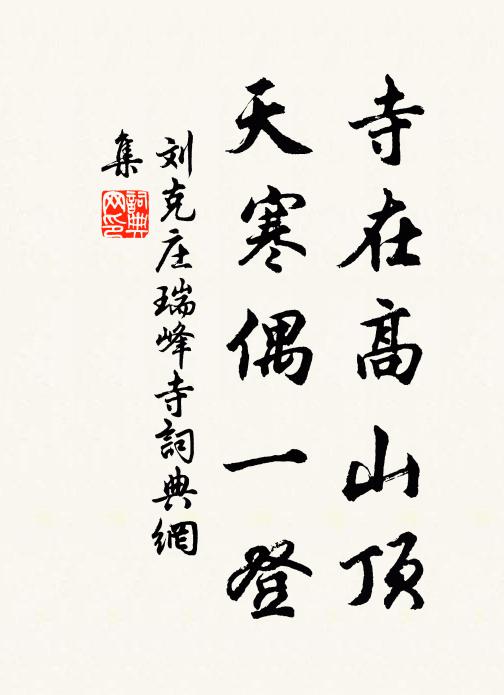 寺在高山顶
天寒偶一登
刘克庄瑞峰寺詞典網
集
詞典网印